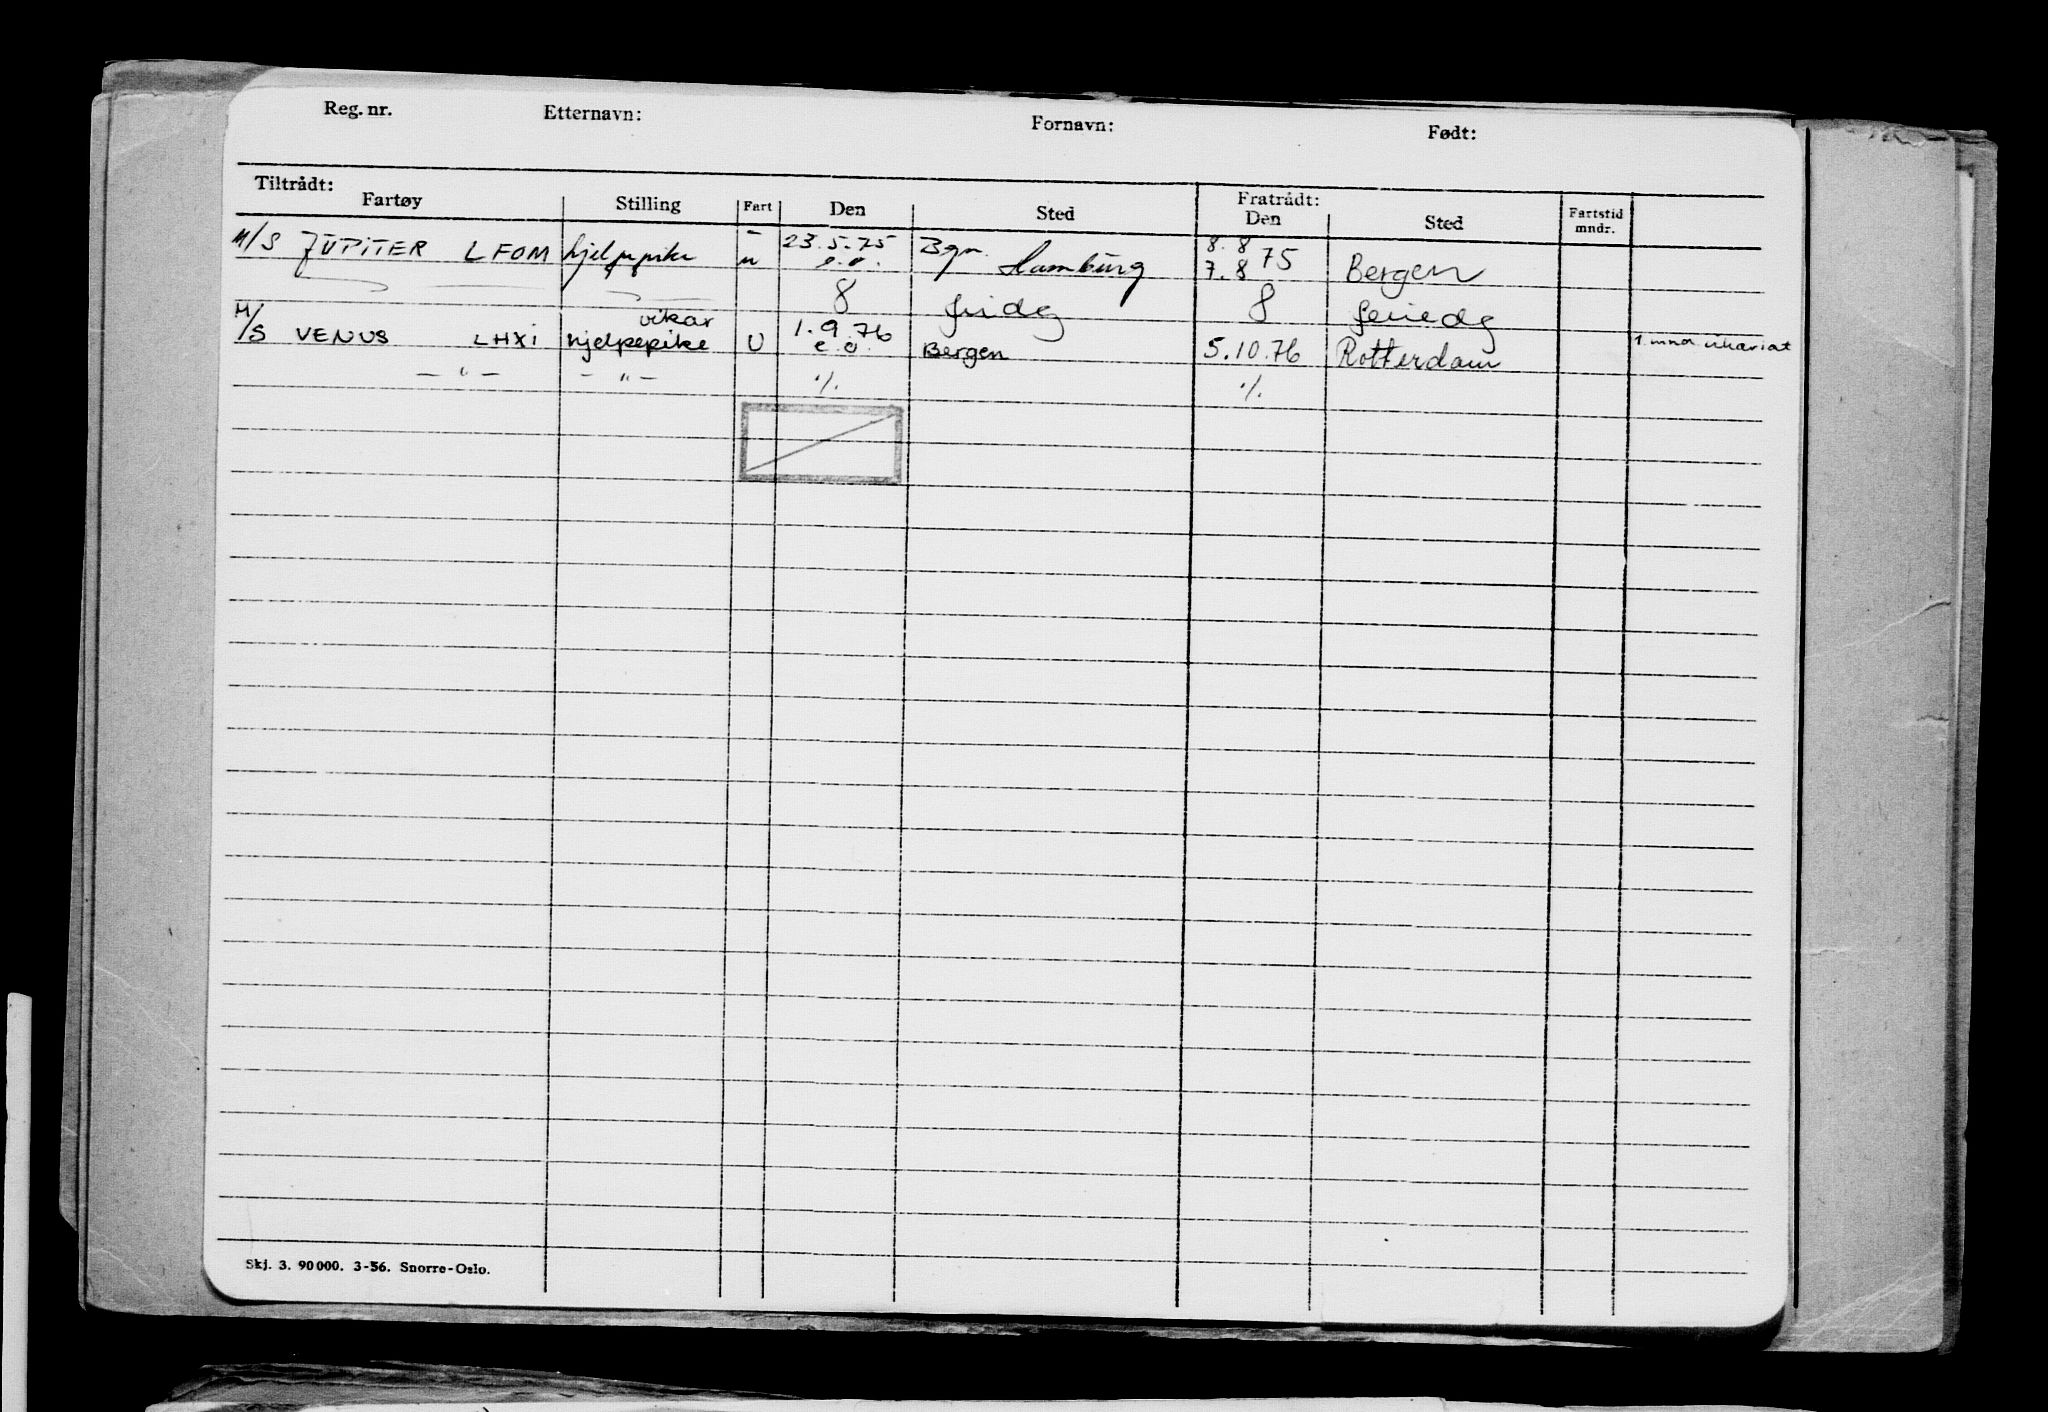 Reg. nr. Etternavn: Fornavn: Født:
Tiltrådt: Fratrådt:
Fartøy Stilling Fart Den Sted Den Sted Fartstid mndr.
M/S JUPITER LFOM hjelpepike u 23.5.75 e.o. Bgn. Hamburg 8.8 7.8 75 Bergen
8 fridg 8 feriedg
M/S VENUS LHXI vikar hjelpepike U 1.9.76 e.o. Bergen 5.10.76 Rotterdam 1. mnd. vikariat
— " — — " — ./. ./.
Skj. 3. 90 000. 3-56. Snorre-Oslo.